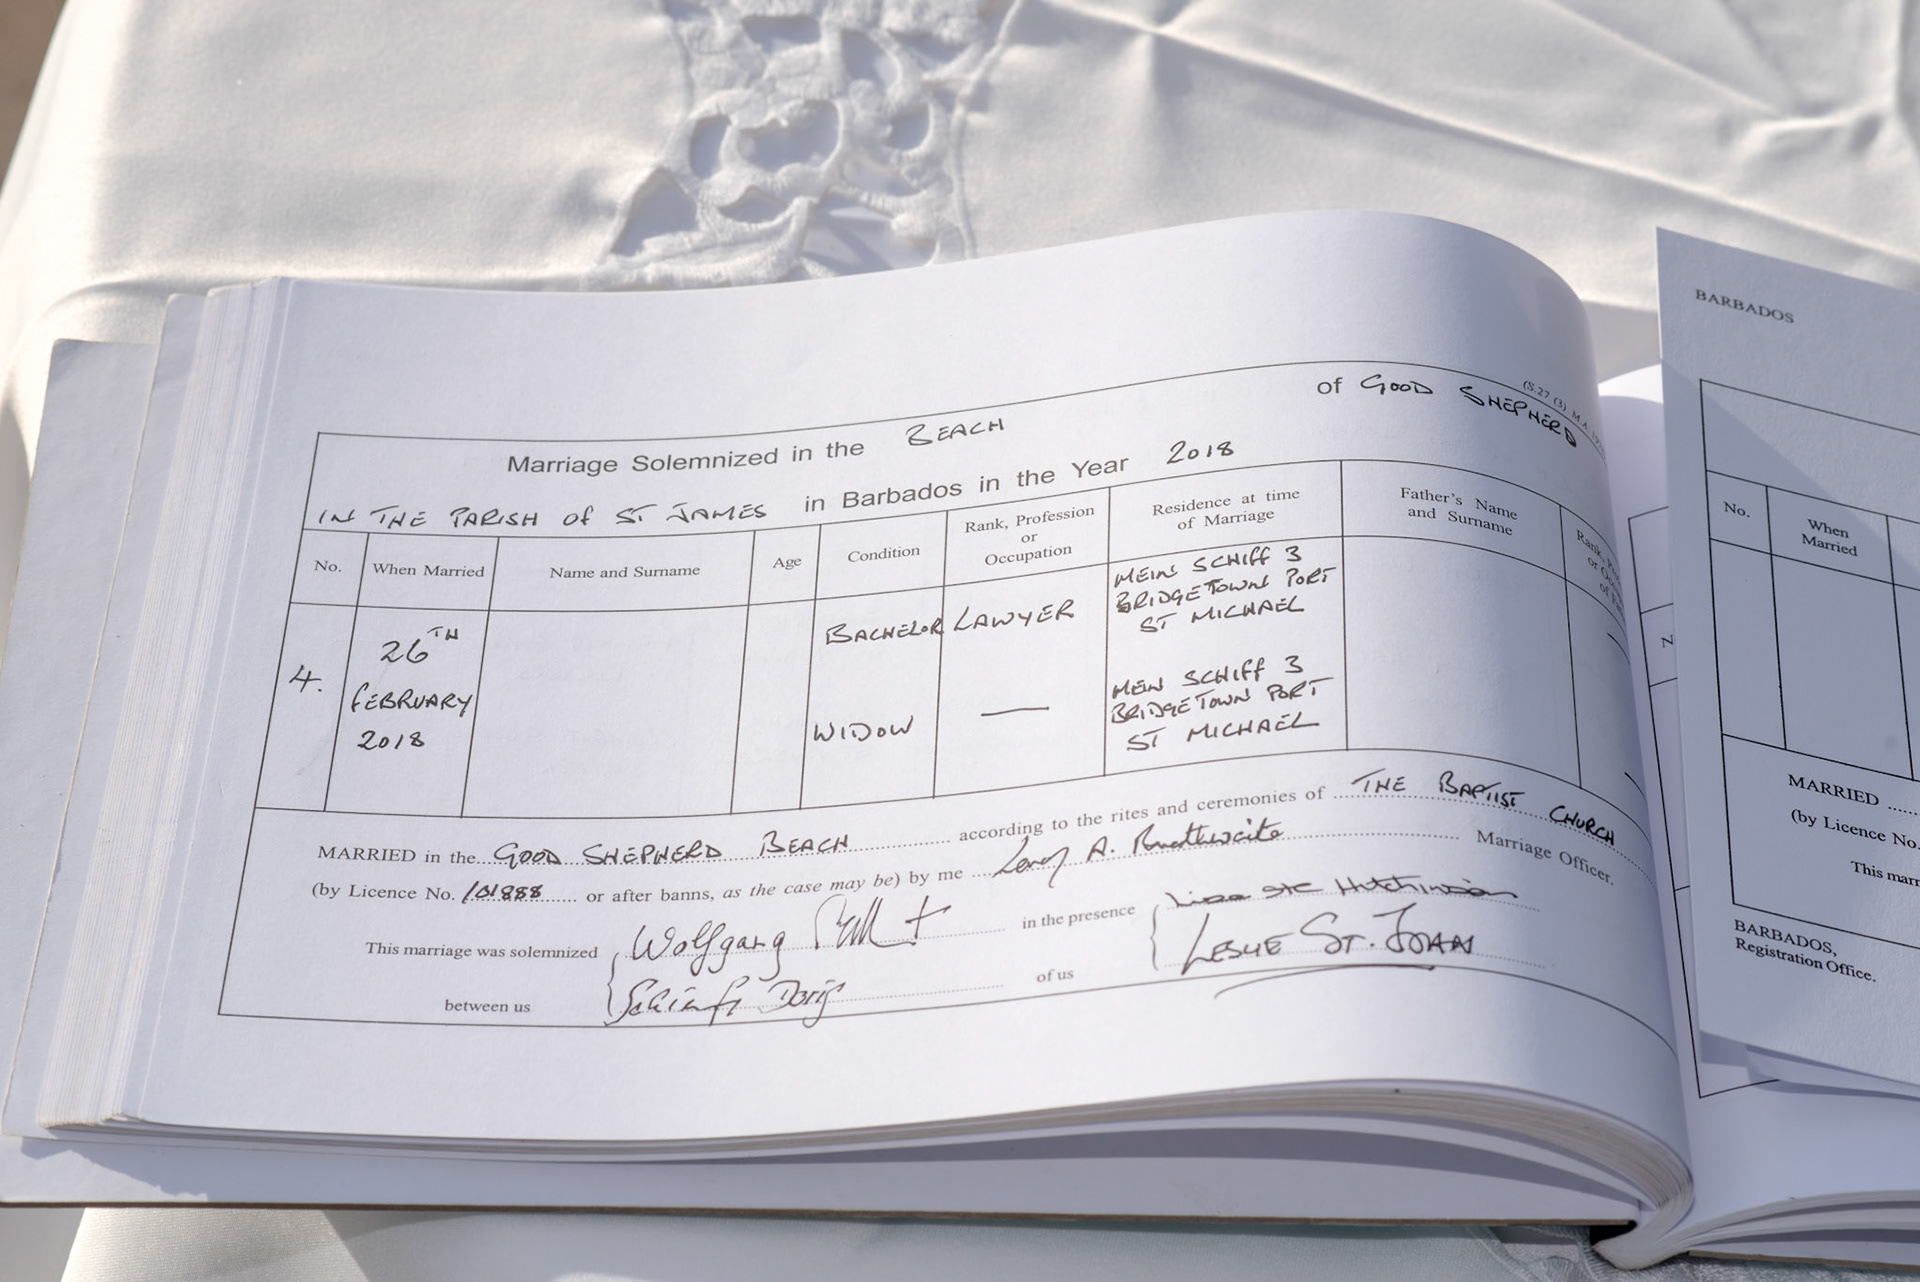 (S.27 (3) M.A.
Marriage Solemnized in the BEACH of GOOD SHEPHERD
IN THE PARISH OF ST JAMES in Barbados in the Year 2018
No. When Married Name and Surname Age Condition Rank, Profession or Occupation Residence at time of Marriage Father's Name and Surname
4. 26TH FEBRUARY 2018
BACHELOR LAWYER MEIN SCHIFF 3
BRIDGETOWN PORT
ST MICHAEL
WIDOW — MEIN SCHIFF 3
BRIDGETOWN PORT
ST MICHAEL
MARRIED in the GOOD SHEPHERD BEACH according to the rites and ceremonies of THE BAPTIST CHURCH
(by Licence No. 101888 or after banns, as the case may be) by me A. Brathwaite Marriage Officer.
This marriage was solemnized Wolfgang in the presence Hutchinson
between us Doris of us LESLIE ST. JOHN
BARBADOS
No. When Married
MARRIED
(by Licence No.
This marr
BARBADOS,
Registration Office.